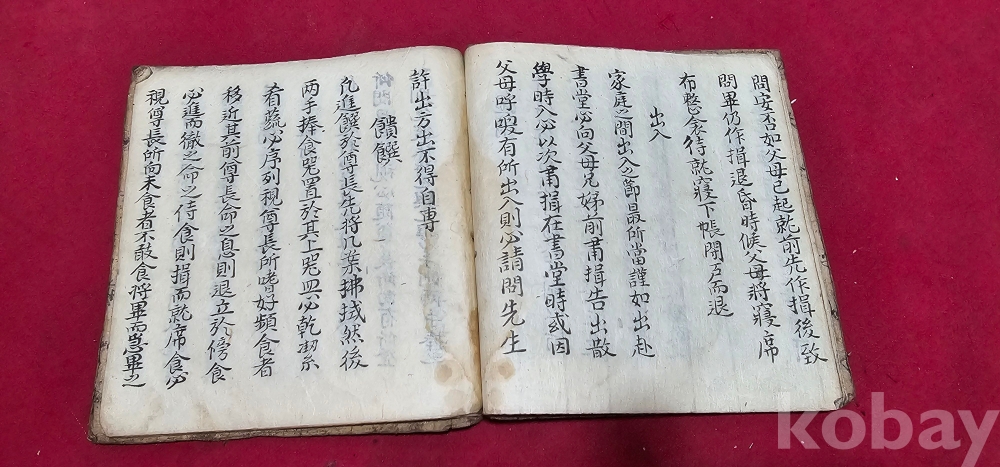 問安否如父母已起就前先作揖後致
問畢仍作揖退昏時候父母將寢席
布整衾待就寢下帳閉戶而退
出入
家庭之間出入之節最所當謹如出赴
書堂必向父母兄姊前肅揖告出散
學時入必以次肅揖在書堂時或因
父母呼喚有所出入則必請問先生
許出方出不得自專
饋饌
凡進饌於尊長先將几案拂拭然後
兩手捧食器置於其上器皿必乾潔
肴蔬必序列視尊長所嗜好頻食者
移近其前尊長命之息則退立於傍食
必進而徹之命之侍食則揖而就席食必
視尊長所向未食者不敢食將畢而急畢之
kobay